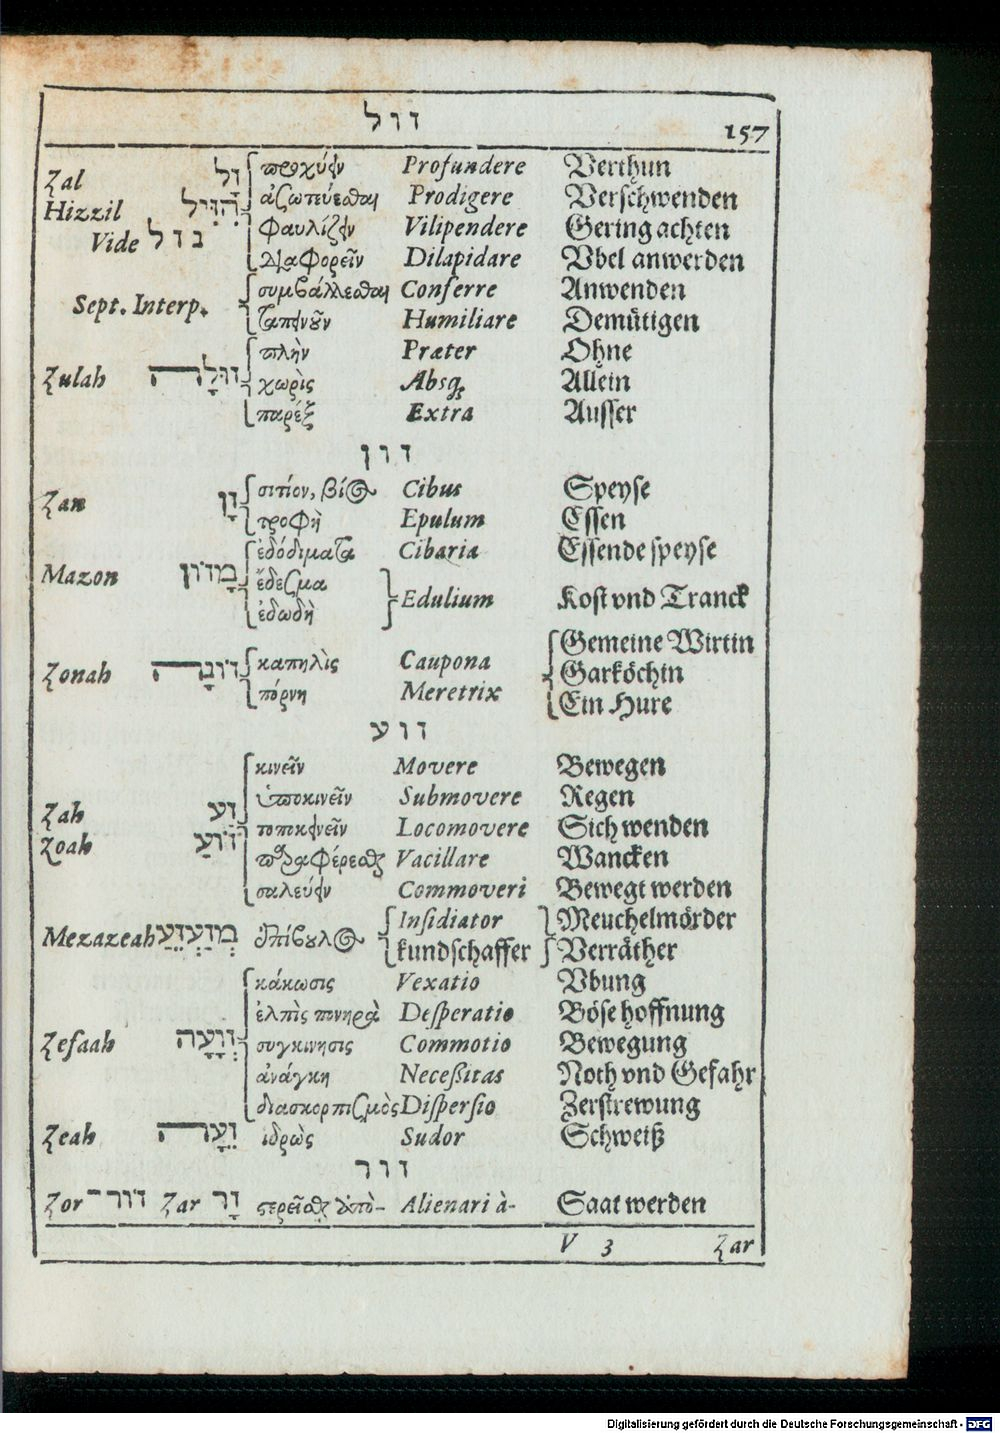 זול
157
Zal זָל προχύειν Profundere Verthun
Hizzil הִזִּיל ἀσωτεύεσθαι Prodigere Verschwenden
Vide נזל φαυλίζειν Vilipendere Gering achten
διαφορεῖν Dilapidare Vbel anwerden
Sept. Interp. συμβάλλεσθαι Conferre Anwenden
ταπεινοῦν Humiliare Demütigen
πλὴν Præter Ohne
Zulah זוּלָה χωρὶς Absq; Allein
παρέξ Extra Ausser
זון
Zan זָן σιτίον, βίος Cibus Speyse
τροφὴ Epulum Essen
ἐδόδιματα Cibaria Essende speyse
Mazon מָזוֹן ἔδεσμα Edulium Kost vnd Tranck
ἐδωδὴ
Gemeine Wirtin
Zonah זוֹנָה καπηλὶς Caupona Garköchin
πόρνη Meretrix Ein Hure
זוע
κινεῖν Movere Bewegen
Zah זָע ὑποκινεῖν Submovere Regen
τοποκινεῖν Locomovere Sich wenden
Zoah זוֹעַ παραφέρεσθαι Vacillare Wancken
σαλεύειν Commoveri Bewegt werden
Mezazeah מְזַעְזֵעַ ἐπίβουλος Insidiator Meuchelmörder
kundschaffer Verräther
κάκωσις Vexatio Vbung
ἐλπὶς πονηρὰ Desperatio Böse hoffnung
Zefaah זְוָעָה συγκινησις Commotio Bewegung
ἀνάγκη Necessitas Noth vnd Gefahr
διασκορπισμὸς Dispersio Zerstrewung
Zeah זֵעָה ἱδρὼς Sudor Schweiß
זור
Zor זור Zar זָר στερεῖσθαι ἀπὸ- Alienari à- Saat werden
V 3 Zar
Digitalisierung gefördert durch die Deutsche Forschungsgemeinschaft - DFG